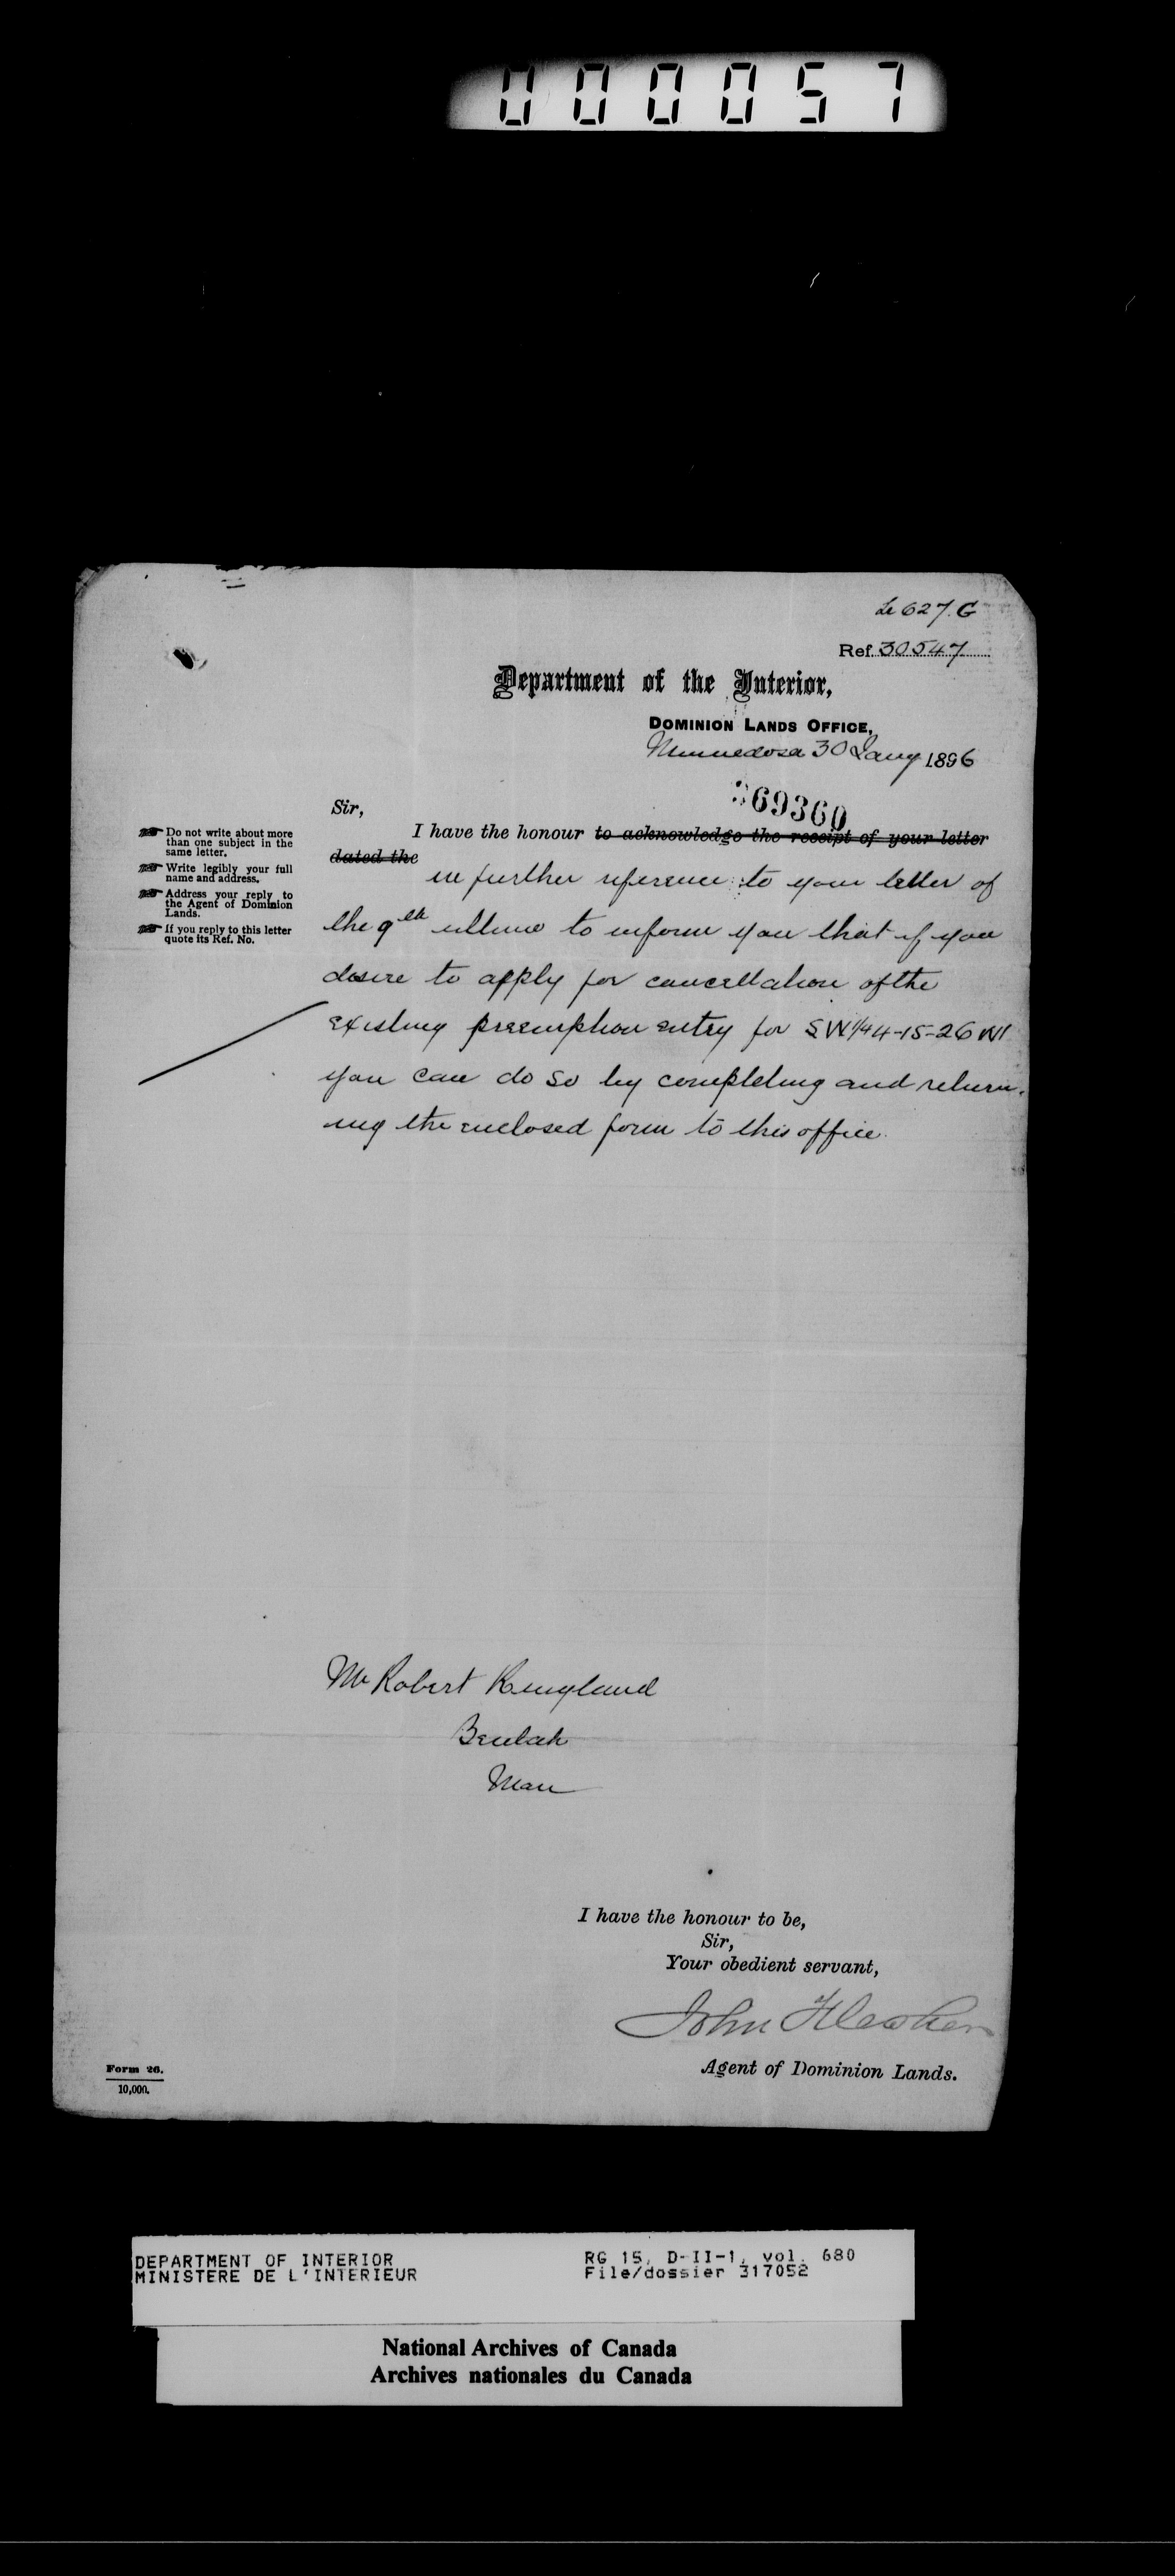 000057
Le 627. G
Ref. 30547
Department of the Interior,
DOMINION LANDS OFFICE,
Minnedosa 30 Jany 1896
369360
Sir,
I have the honour to acknowledge the receipt of your letter
dated the
in further reference to your letter of
the 9th ultimo to inform you that if you
desire to apply for cancellation of the
existing preemption entry for SW 1/4 4-15-26 W1
you can do so by completing and return-
ing the enclosed form to this office.
Do not write about more
than one subject in the
same letter.
Write legibly your full
name and address.
Address your reply to
the Agent of Dominion
Lands.
If you reply to this letter
quote its Ref. No.
Mr Robert
Beulah
Man
I have the honour to be,
Sir,
Your obedient servant,
John
Agent of Dominion Lands.
Form 26.
10,000.
DEPARTMENT OF INTERIOR
MINISTERE DE L'INTERIEUR
RG 15, D-II-1, vol. 680
File/dossier 317052
National Archives of Canada
Archives nationales du Canada